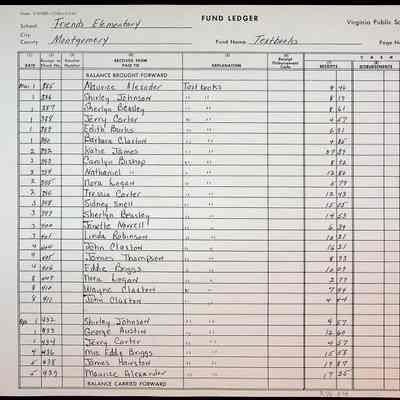 School Friends Elementary
FUND LEDGER
Virginia Public Sc
City
County Montgomery
Fund Name Textbooks
Page N
DATE
RECEIVED FROM PAID TO
EXPLANATION
RECEIPTS
DISBURSEMENTS
BALANCE BROUGHT FORWARD
Mar 1 385 Maurice Alexander Textbooks 9 46
1 386 Shirley Johnson " " 8 19
1 387 Sherlyn Beasley " " 8 61
1 388 Jerry Carter " " 4 57
1 389 Edith Banks " " 6 91
1 390 Barbara Claxton " " 4 85
2 392 Katie James " "
2 393 Carolyn Bishop " " 8 82
3 394 Nathaniel " " 12 80
2 395 Nora Logan " " 5 79
2 396 Tressia Carter " " 12 43
3 398 Sidney Snell " " 15 05
3 Sherlyn Beasley " " 14 53
3 Janette Norrell " " 6 39
3 401 Linda Robinson " " 10 31
4 John Claxton " " 16 21
4 405 James Thompson " " 8 93
4 406 Eddie Briggs " "
8 Nora Logan " " 2 77
8 410 Wayne Claxton " " 7 94
8 411 John Claxton " "
Apr 1 432 Shirley Johnson " " 4 57
1 433 George Austin " " 12 60
1 434 Jerry Carter " " 4 57
4 436 Mrs Eddie Briggs " " 15 58
5 438 James Hairston " " 19 87
5 439 Maurice Alexander " " 17 25
BALANCE CARRIED FORWARD